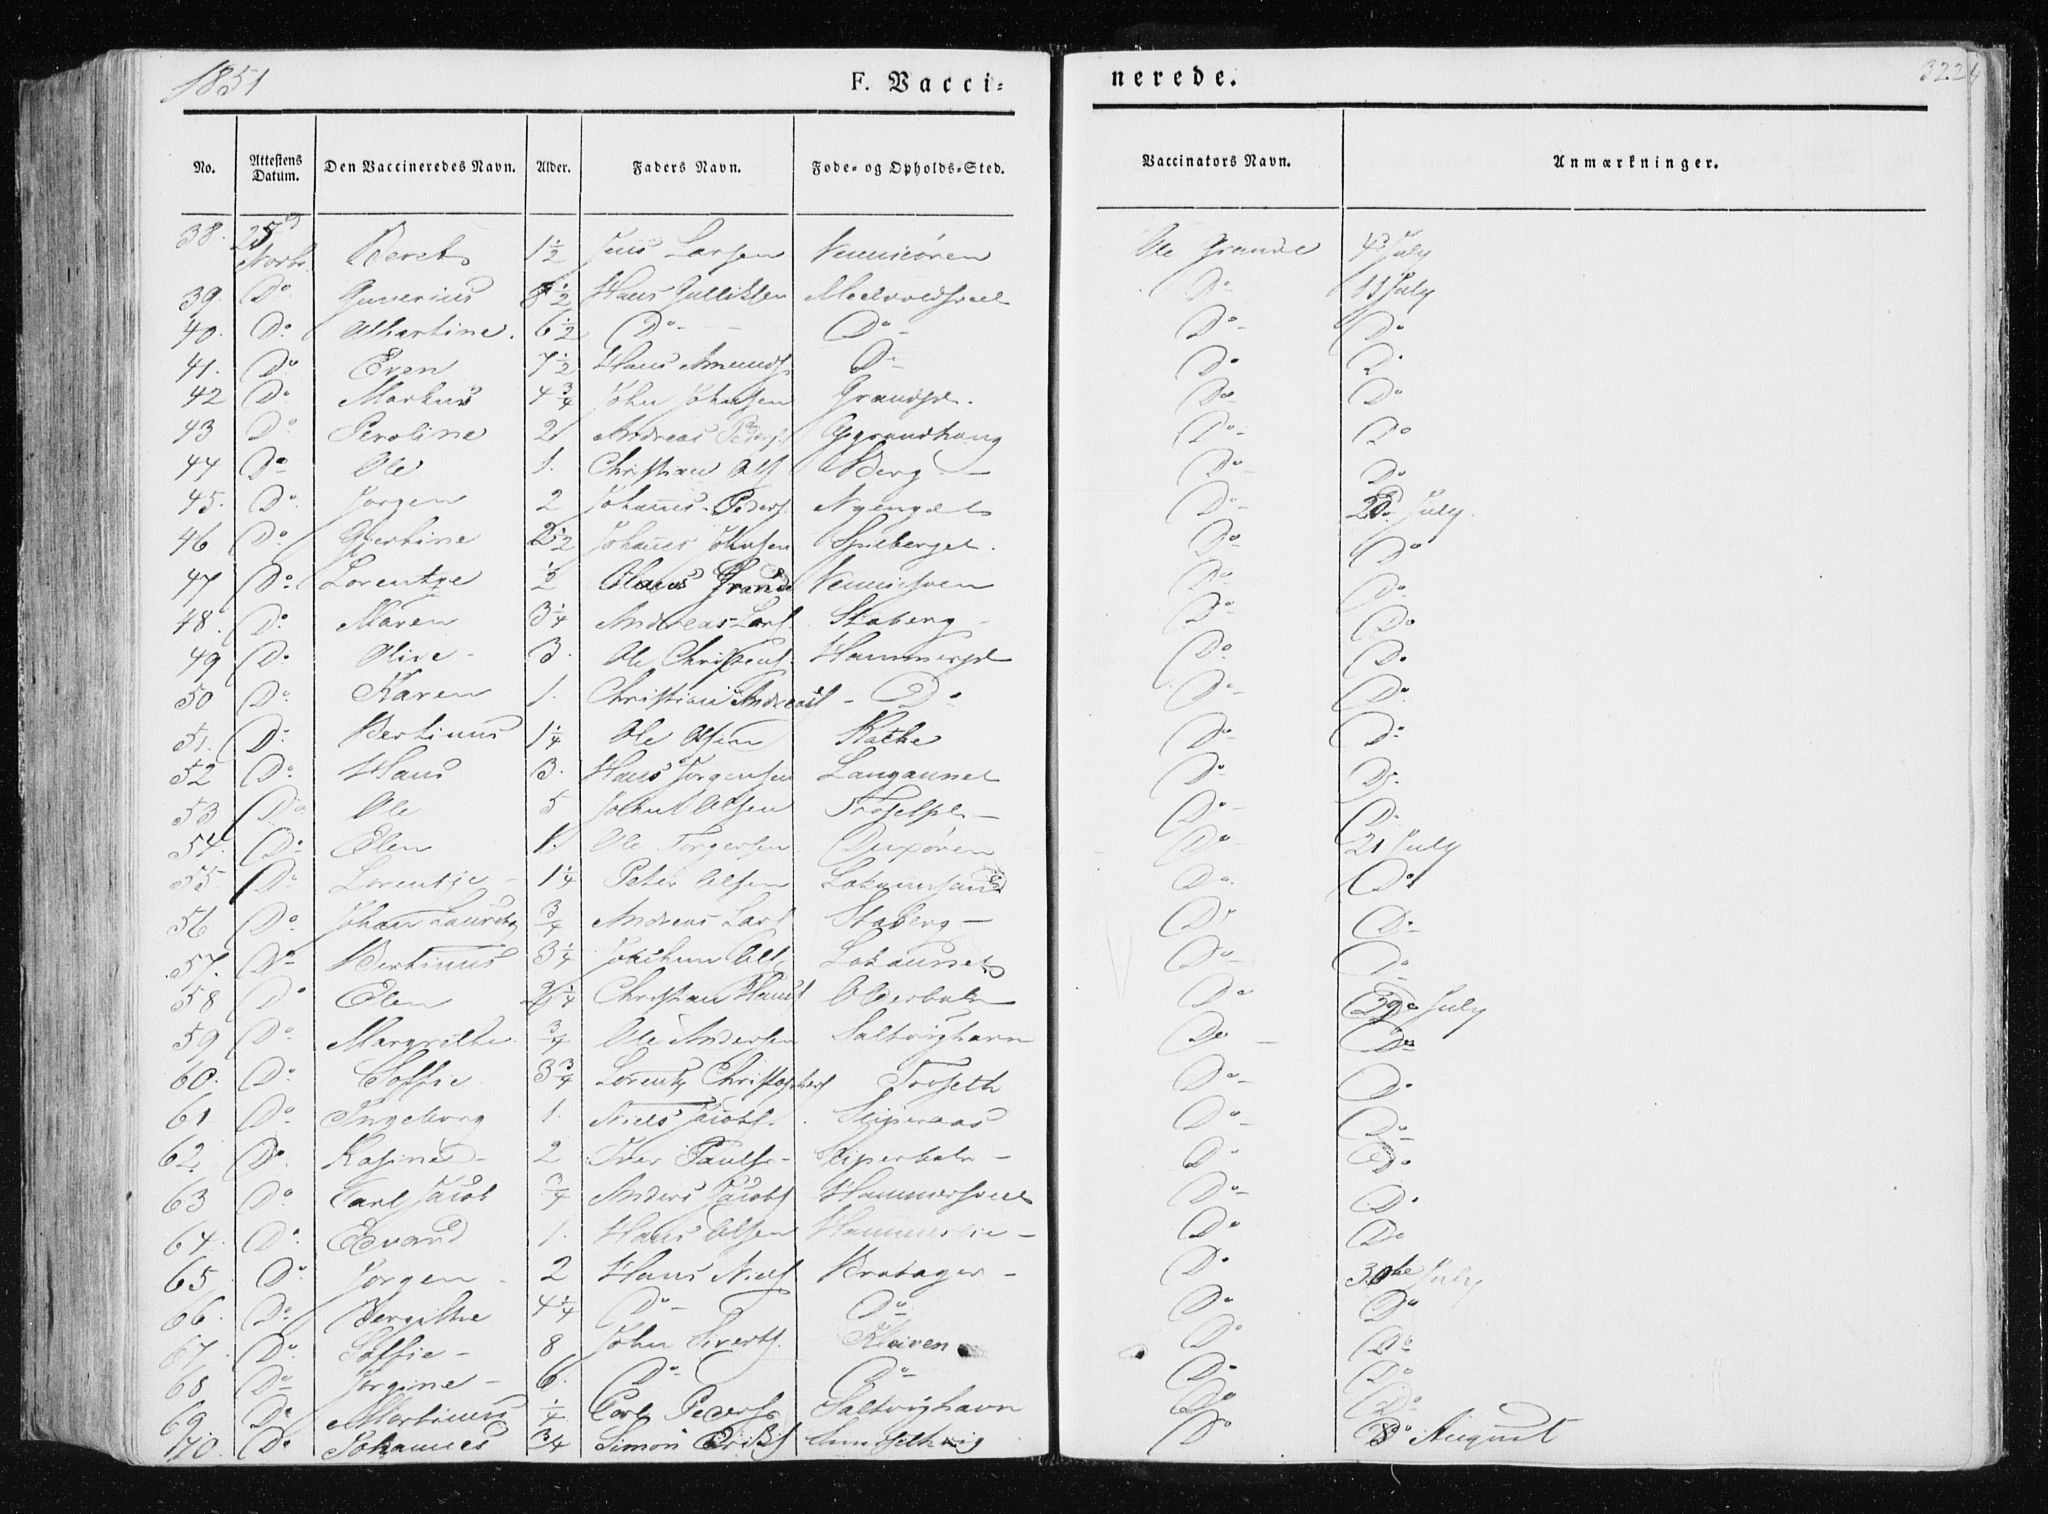 1851 F. Vacci= nerede. 322
No. Attestens Datum. Den Vaccineredes Navn. Alder. Faders Navn. Føde= og Opholds=Sted. Vaccinators Navn. Anmærkninger.
38. 25 Novbr. Beret 1½ Jens Larsen Vennesøren Ole Grande July
39. Do Gunerius ½ Hans Gulliksen Do 11 July
40. Do Albertine. 6½ Do Do Do Do
41. Do Even 7½ Hans Amunds Do Do Do
42 Do Markus 4¾ John Johnsen Grandspl. Do Do
43 Do Peroline 2 Andreas Peders Do Do
44 Do Ole 1. Christian Ols Berg Do Do
45. Do Jørgen 2 Johanns Peders. Nyenget Do 20 July.
46 Do Gjertine 2½ Johans Johnsen Spilberget. Do Do
47 Do Lorentze ½ Olaus Grande Do Do
48. Do Maren 3¼ Andreas Lars. Staberg Do Do
49 Do Olive 3. Ole Christens. Hammerspl Do Do
50 Do Karen 1. Christian Andreas Do Do Do
51. Do Bertinus 1¼ Ole Olsen Do Do
52 Do Hans 3. Hans Jørgensen Langaunet Do Do
53 Do Ole 5 Olsen Do Do
54. Do Elen 1. Ole Torgersen Do 21 July
55 Do Lorentze 1¼ Peter Olsen Do Do
56 Do Johan Lauritz ¾ Andreas Lars Staberg Do Do
57. Do Bertinus 3¼ Jochum Ols Do Do
58 Do Elen ¼ Christian Hans Do 29de July
59 Do Margrethe ¾ Ole Andersen Saltvighavn Do Do
60. Do Soffie 3¾ Lorentz Christophers Troseth Do Do
61 Do Ingeborg 1. Niels Jacobs. Sliperaas Do Do
62. Do Kasine 2 Iver Pauls Do Do
63 Do Carl Jacob ¾ Anders Jacobs Hammersveet Do Do
64. Do Evard 1. Hans Olsen Hammerlie Do Do
65. Do Jørgen 2 Hans Niels Bratager Do 30te July
66. Do Bergithe 4¼ Do Do Do Do
67. Do Soffie 8 John Siverts. Kleiven Do Do
68. Do Jørgine 6. Do Do Do Do
69. Do Martinus ¼ Carl Peders Saltvighavn Do Do
70. Do Johannes ¾ Simon Do 8 August